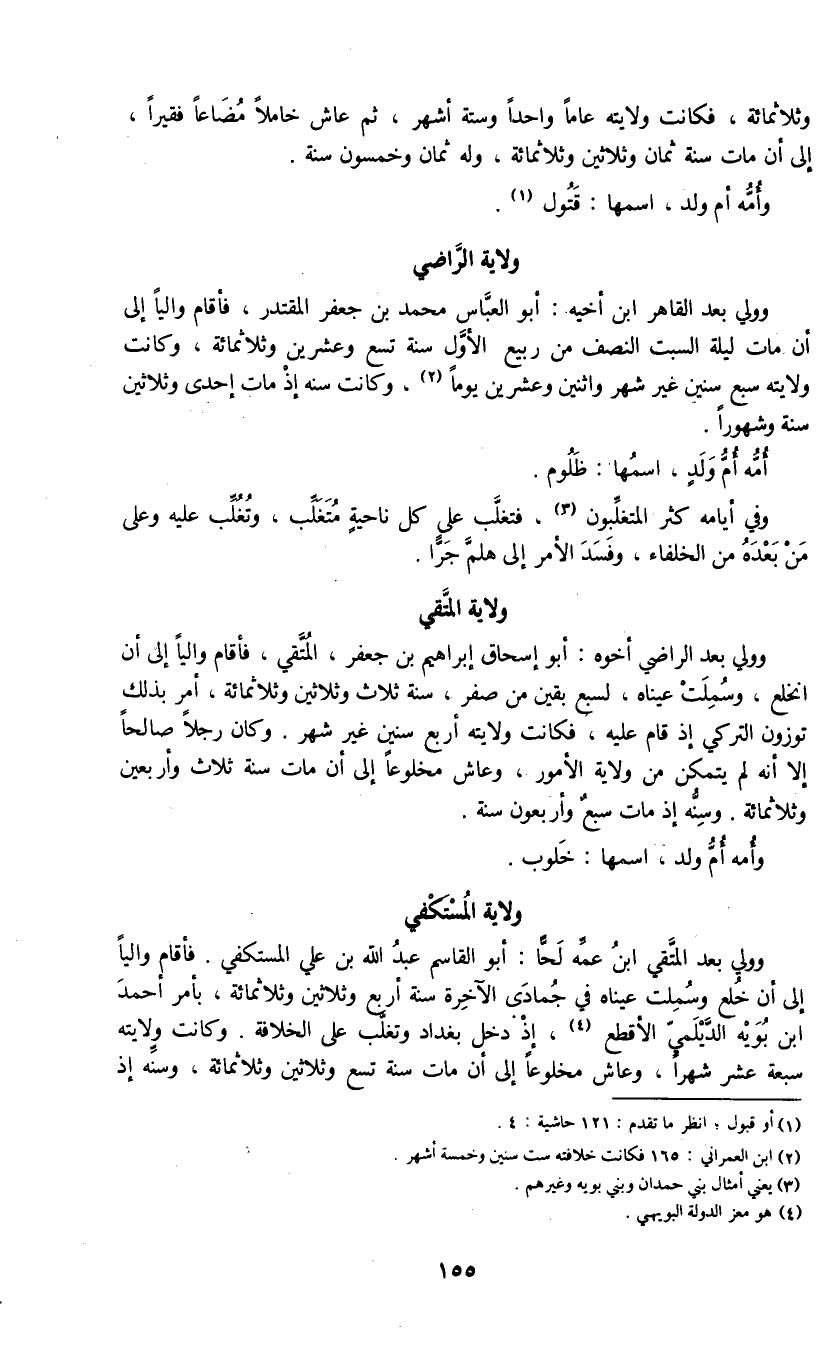 وثلاثمائة ، فكانت ولايته عاماً واحداً وستة أشهر ، ثم عاش خاملاً مُضَاعاً فقيراً ،
إلى أن مات سنة ثمان وثلاثين وثلاثمائة ، وله ثمان وخمسون سنة .
وأُمُّه أم ولد ، اسمها : قَتُول (١) .
ولاية الرَّاضي
وولي بعد القاهر ابن أخيه : أبو العبَّاس محمد بن جعفر المقتدر ، فأقام والياً إلى
أن مات ليلة السبت النصف من ربيع الأوَّل سنة تسع وعشرين وثلاثمائة ، وكانت
ولايته سبع سنين غير شهر واثنين وعشرين يوماً (٢) ، وكانت سنه إذْ مات إحدى وثلاثين
سنة وشهوراً .
أُمُّه أُمُّ وَلَدٍ ، اسمُها : ظَلُوم .
وفي أيامه كثر المتغلِّبون (٣) ، فتغلَّب على كل ناحيةٍ مُتَغَلِّب ، وتُغُلِّب عليه وعلى
مَنْ بَعْدَهُ من الخلفاء ، وفَسَدَ الأمر إلى هلمَّ جَرًّا .
ولاية المتَّقي
وولي بعد الراضي أخوه : أبو إسحاق إبراهيم بن جعفر ، المُتَّقي ، فأقام والياً إلى أن
انخلع ، وسُمِلَتْ عيناه ، لسبع بقين من صفر ، سنة ثلاث وثلاثين وثلاثمائة ، أمر بذلك
توزون التركي إذ قام عليه ، فكانت ولايته أربع سنين غير شهر . وكان رجلاً صالحاً
إلا أنه لم يتمكن من ولاية الأمور ، وعاش مخلوعاً إلى أن مات سنة ثلاث وأربعين
وثلاثمائة . وسِنُّه إذ مات سبعٌ وأربعون سنة .
وأُمه أُمُّ ولد ، اسمها : خَلوب .
ولاية المُسْتَكْفي
وولي بعد المتَّقي ابنُ عمِّه لَحًّا : أبو القاسم عبدُ الله بن علي المستكفي . فأقام والياً
إلى أن خُلع وسُمِلت عيناه في جُمادَى الآخِرة سنة أربع وثلاثين وثلاثمائة ، بأمر أحمدَ
ابن بُوَيْه الدَّيْلَميّ الأقطع (٤) ، إذْ دخل بغداد وتغلَّب على الخلافة . وكانت ولايته
سبعة عشر شهراً ، وعاش مخلوعاً إلى أن مات سنة تسع وثلاثين وثلاثمائة ، وسنَّه إذ
(١) أو قبول ؛ انظر ما تقدم : ١٢١ حاشية : ٤ .
(٢) ابن العمراني : ١٦٥ فكانت خلافته ست سنين وخمسة أشهر .
(٣) يعني أمثال بني حمدان وبني بويه وغيرهم .
(٤) هو معز الدولة البويهي .
١٥٥